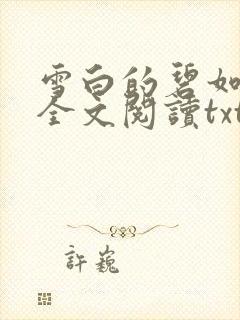 雪白的碧如
全文閱讀txt
許巍